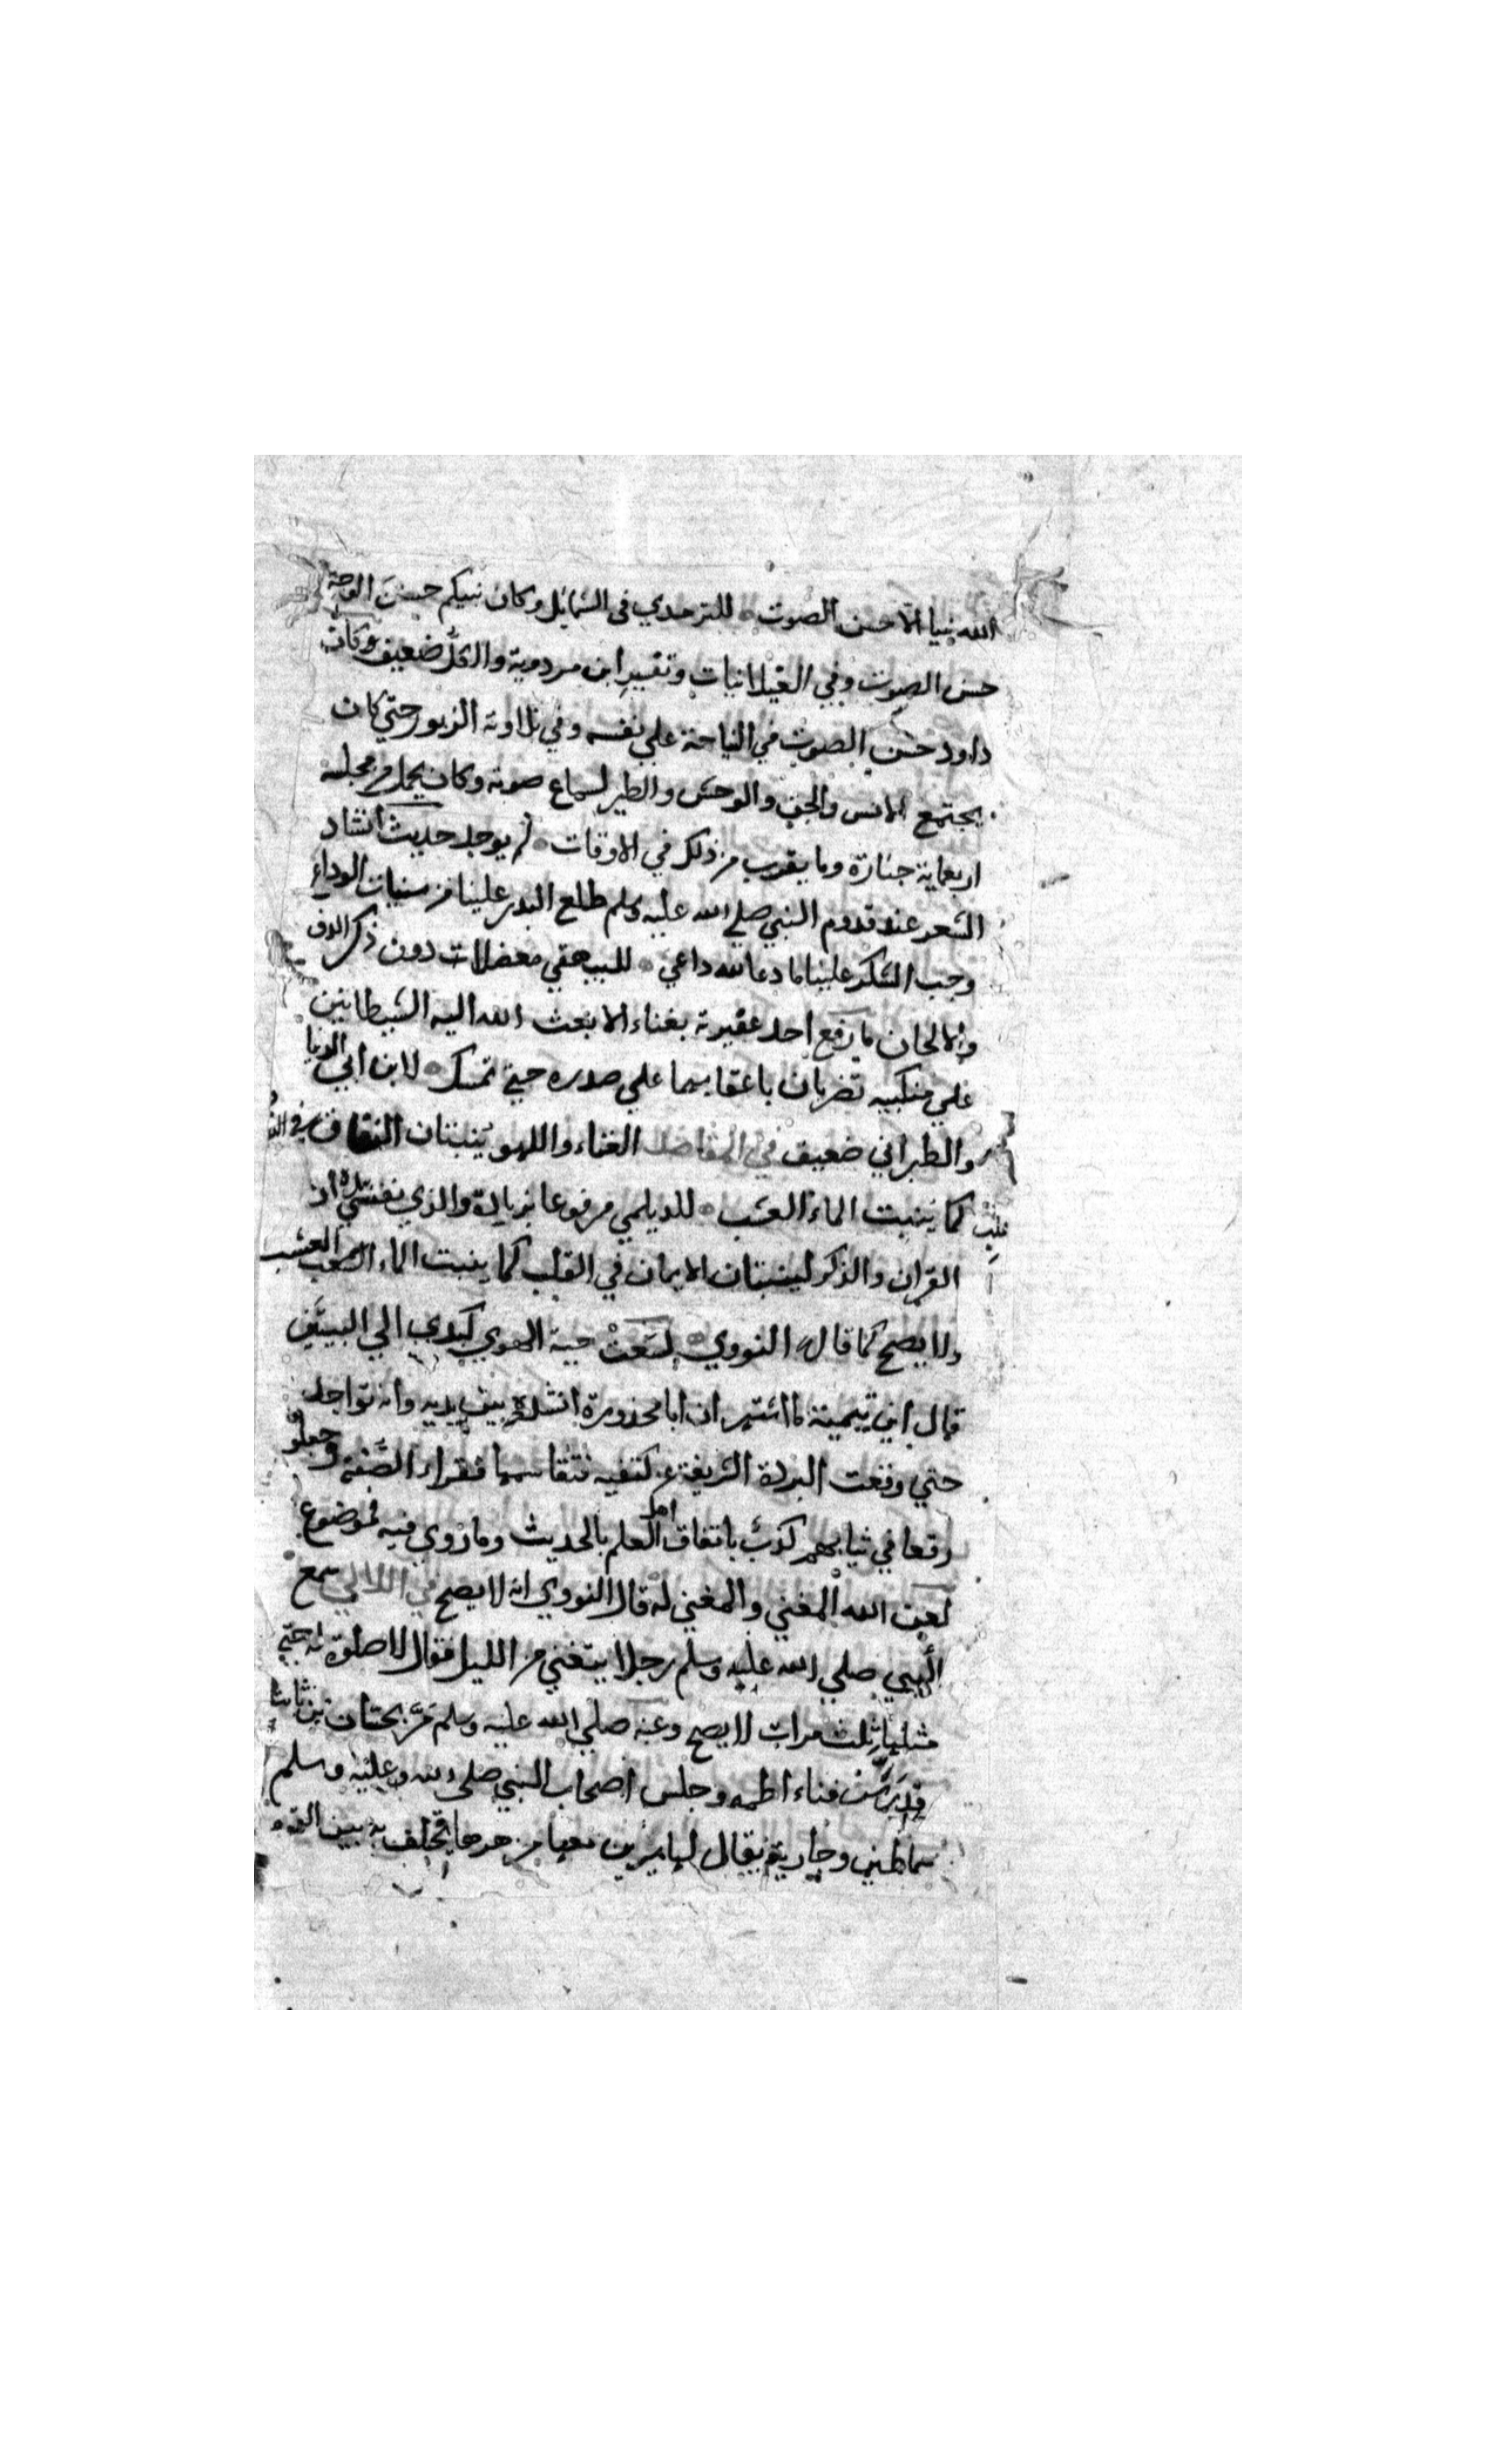 الله نبيا الا حسن الصوت ه للترمدي في الشمايل وكان نبيكم حسن الوجه
حسن الصوت وفي الغيلانيات وتفسير ابن مردوية والكل ضعيف وكان
داود حسن الصوت في النياحة علي نفسه وفي تلاوته الزبور حتي كان
يجتمع الانس والجن والوحش والطير لسماع صوته وكان يحمل من مجلسه
اربعماية جنازة وما يقرب من ذلك في الاوقات ه لم يوجد حديث انشاد
الشعر عند قدوم النبي صلي الله عليه وسلم طلع البدر علينا من سنيات الوداع
وجب الشكر علينا ما دعا لله داعي ه للبيهقي معضلات دون ذكر الدف
والالحان ما رفع احد عقيرته بغناء الا بعث الله اليه الشيطانين
علي منكبيه تضربان باعقابهما علي صدره حتي تمسك ه لابن ابي الدنيا
والطبراني ضعيف في المقاصد الغناء واللهو ينبتان النفاق في القلب
كما ينبت الماء العشب ه للديلمي مرفوعا بزيادة والذي نفسي بيده ان
القران والذكر لينبتان الايمان في القلب كما ينبت الماء العشب
ولا يصح كما قال النووي ه لسعت حية الهوي كبدي الي البيتين
قال ابن تيمية ما اشتهر ان ابا محذورة انشده بين يديه وانه تواجد
حتي وقعت البردة الشريفة عن كتفيه فتقاسمها فقراء الصفة وجعلوه
رقعا في ثيابهم كذب باتفاق اهل العلم بالحديث وما روي فيه فموضوع
لعن الله المغني والمغني له قال النووي انه لا يصح في اللالي سمع
النبي صلي الله عليه وسلم رجلا يتغني من الليل فقال لا صلوة له حتي
مثلها ثلث مرات لا يصح وعنه صلي الله عليه وسلم مر بحسان بن ثابت
وقد رش فناء اطمه وجلس اصحاب النبي صلي الله عليه وسلم
سماطين وجارية يقال لها سيرين معها مزهرها تختلف به بين القوم